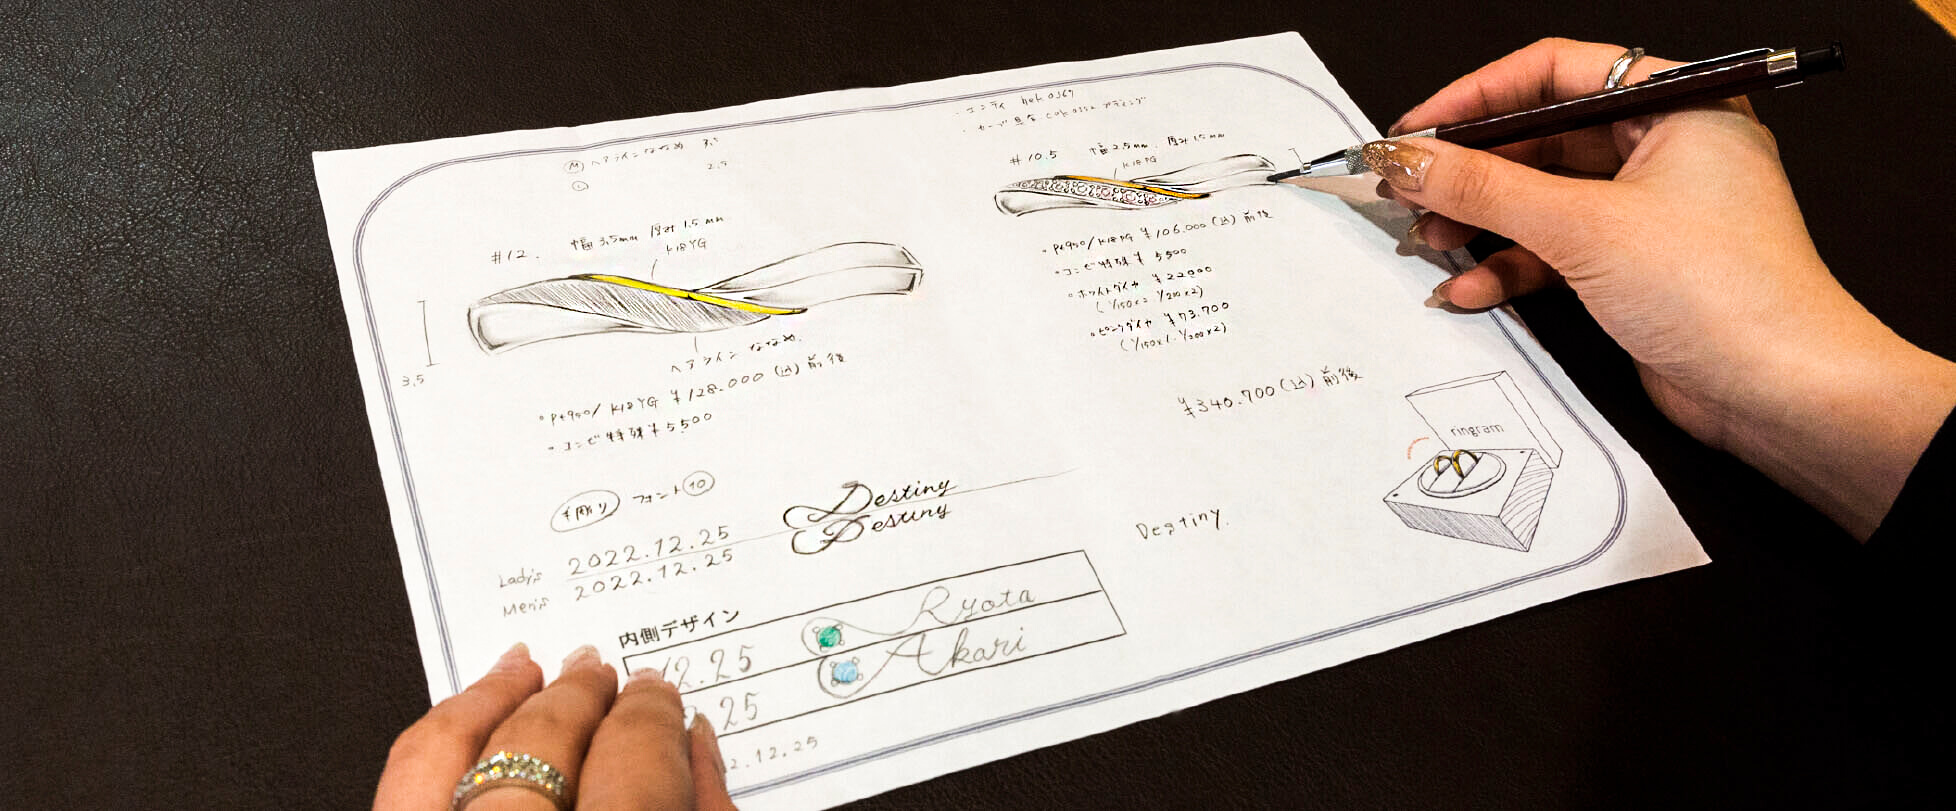 Ⓜ ヘアライン ななめ 3.5
Ⓛ 2.5
#12. 幅 3.5mm 厚み 1.5mm
K18YG
3.5
ヘアライン ななめ.
・Pt950/K18YG ¥128.000(込)前後
・コンビ特殊 ¥5,500
手彫り フォント⑩
Destiny
Destiny
Lady's 2022.12.25
Men's 2022.12.25
内側デザイン
12.25 Ryota
2.25 Akari
2.12.25
#10.5 幅 2.5mm. 厚み 1.5mm
K18PG
・Pt950/K18PG ¥106.000(込)前後
・コンビ特殊 ¥5500
・ホワイトダイヤ ¥22000
(1/150×2 1/200×2)
・ピンクダイヤ ¥73.700
(1/150×1. 1/200×2)
¥340.700(込)前後
ringram
Destiny.